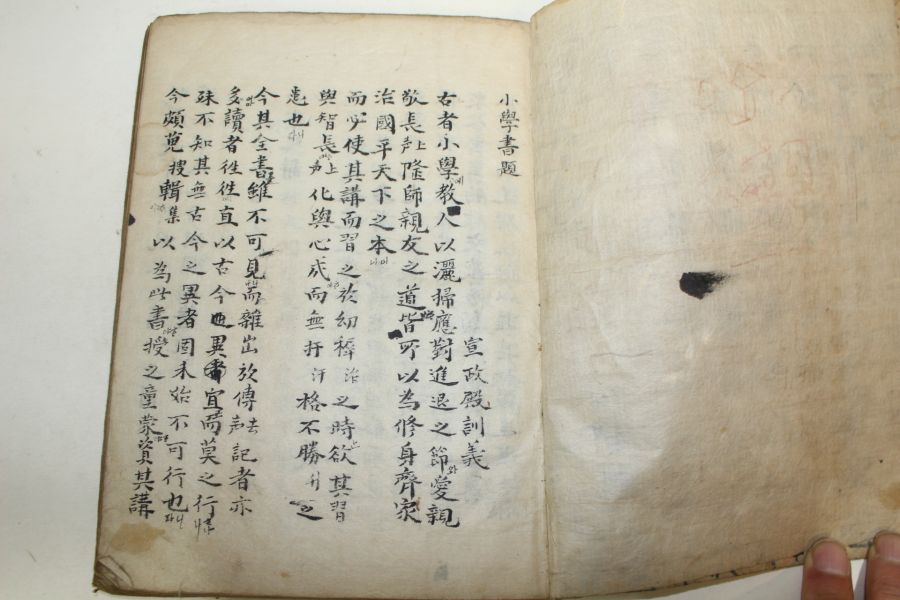 小學書題
宣政殿訓義
古者小學에教人以灑掃應對進退之節와愛親
敬長上声隆師親友之道皆所以為修身齊家
治國平天下之本
而必使其講而習之於幼穉治之時欲其習
與智長上声化與心成而無扞汗格不勝升之
患也
今其全書雖不可見而雜出於傳去声記者亦
多讀者徃徃直以古今異宜而莫之行
殊不知其無古今之異者固未始不可行也
今頗蒐搜輯集以為此書授之童蒙資其講